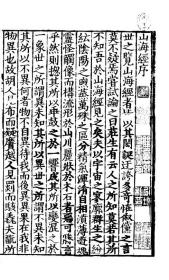 山海經序
世之覽山海經者皆以其閎誕迂誇多奇怪俶儻之言
莫不疑焉嘗試論之曰莊生有云人之所知莫若其所
不知吾於山海經見之矣夫以宇宙之寥廓羣生之紛
紜陰陽之煦蒸萬殊之區分精氣渾淆自相濆薄遊魂
靈怪觸像而構流形於山川麗狀於木石者惡可勝言
乎然則總其所以乖鼓之於一響成其所以變混之於
一象世之所謂異未知其所以異世之所謂不異未知
其所以不異何者物不自異待我而後異異果在我非
物異也故胡人見布而疑黂越人見罽而駭毳夫翫所